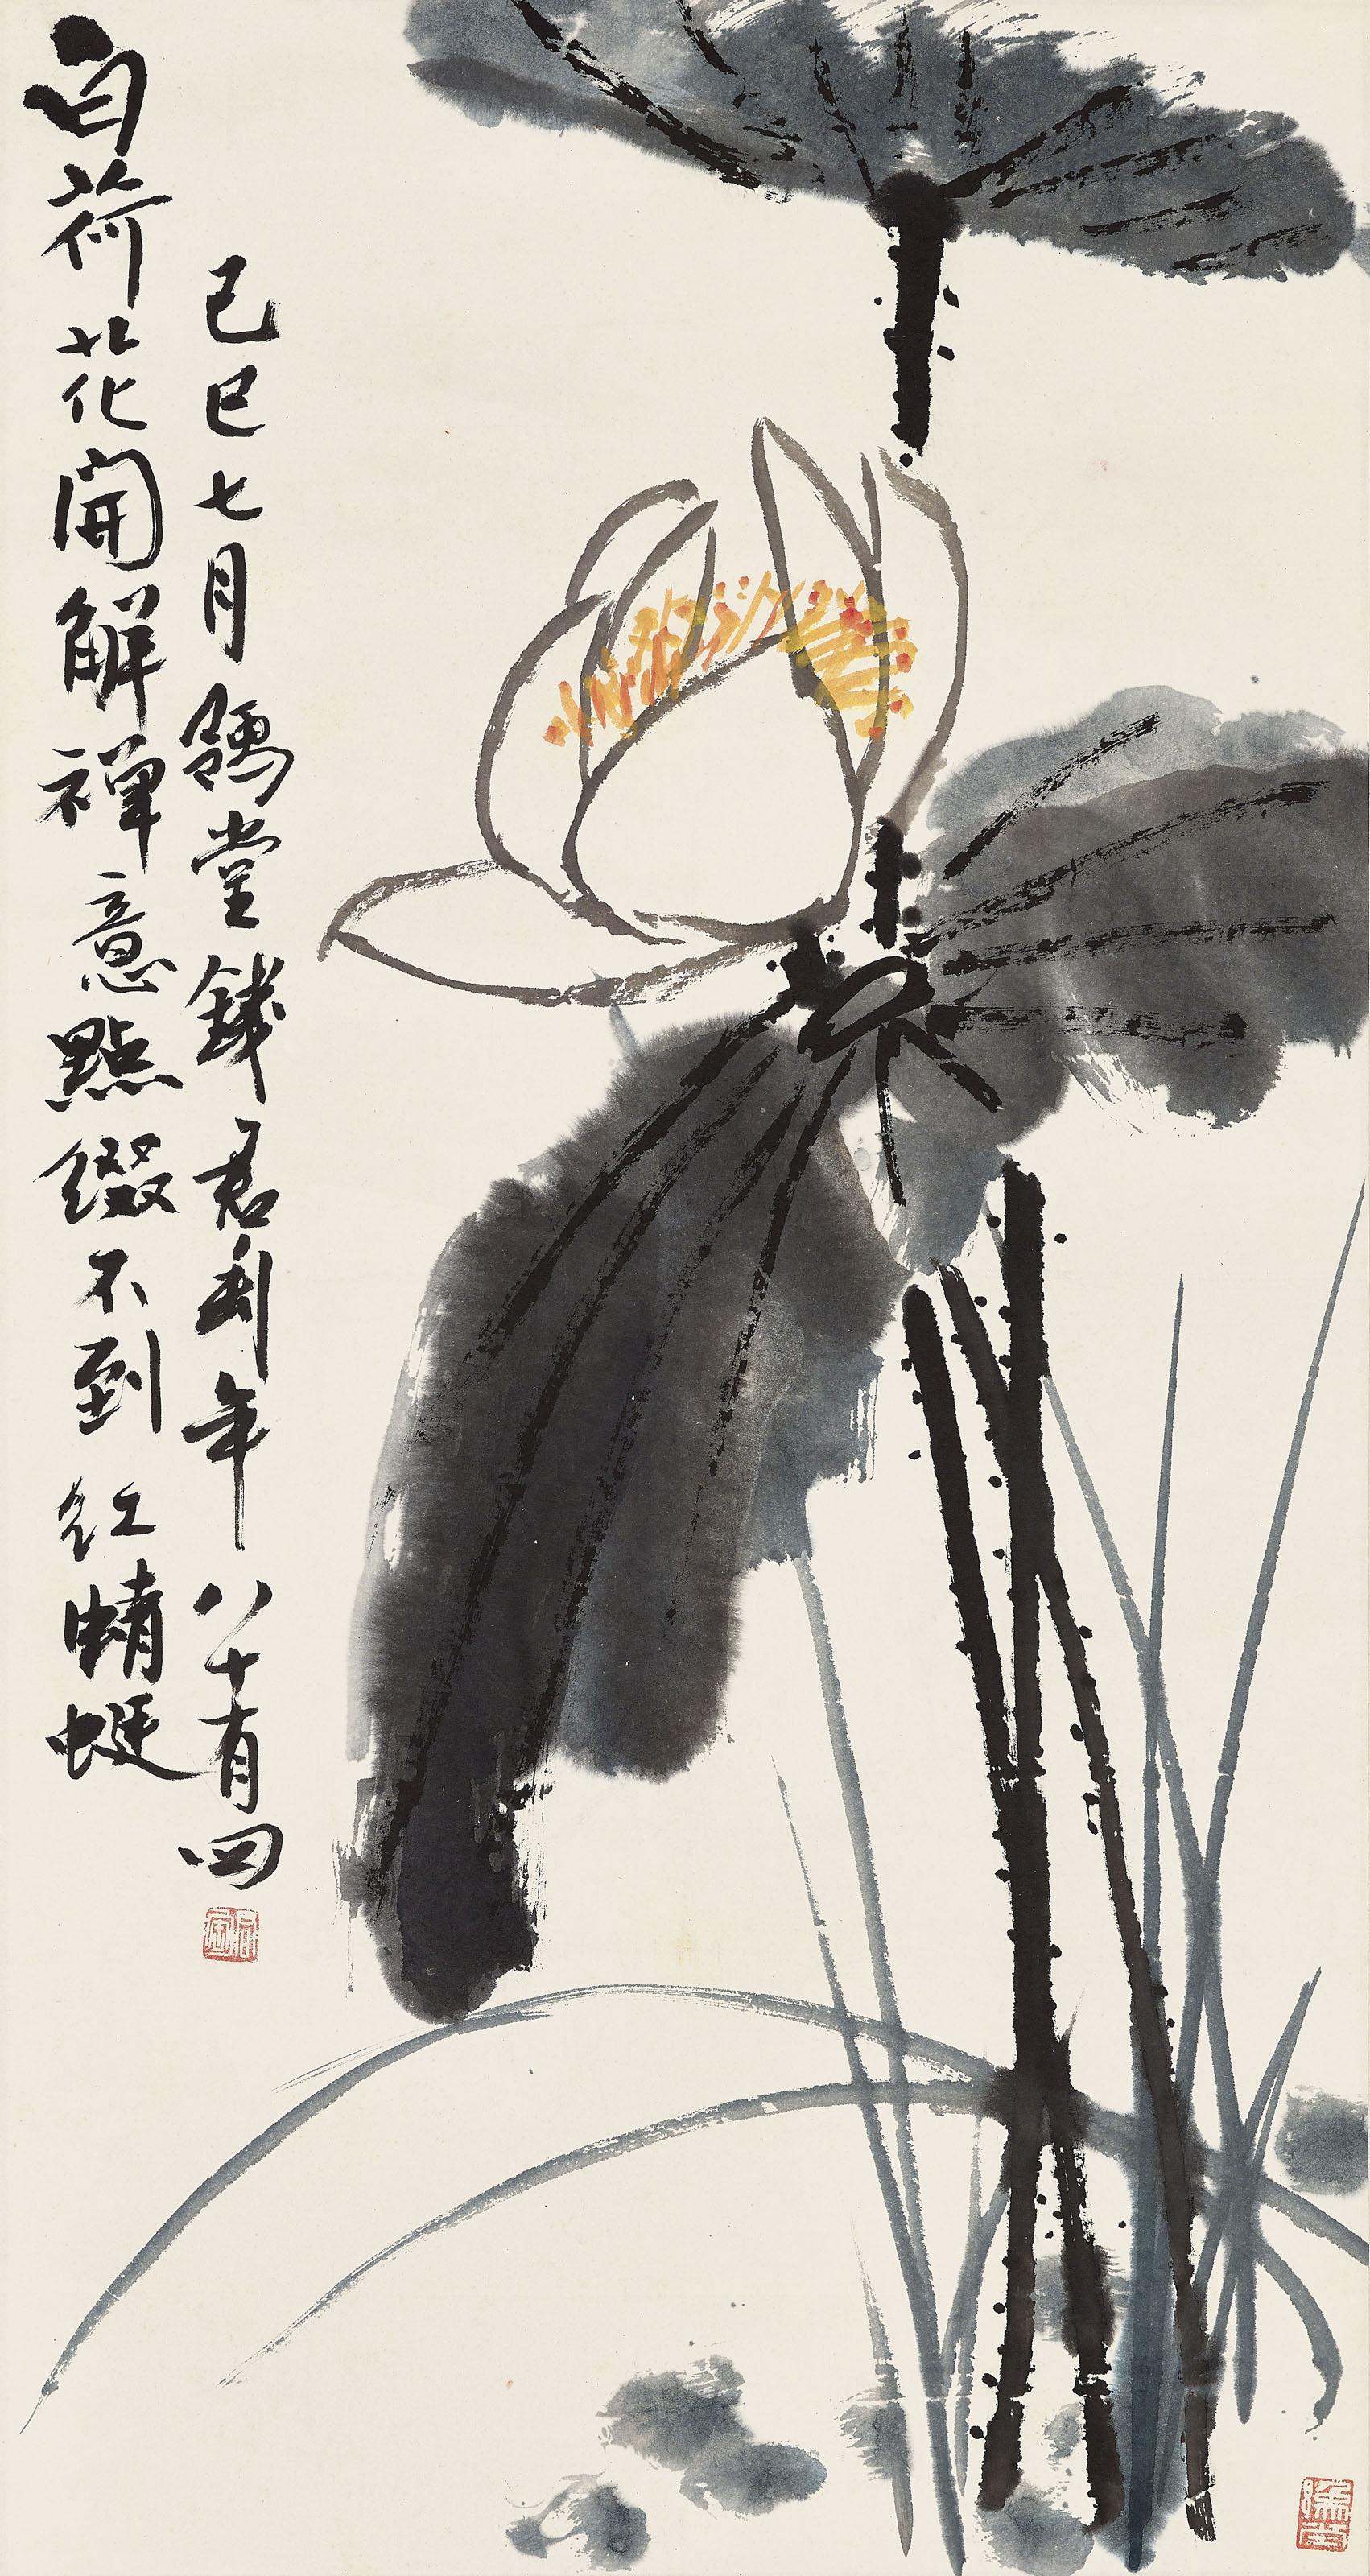 白荷花開解禪意點綴不到紅蜻蜓
己巳七月豫堂錢君匋年八十有四
君匋
豫堂